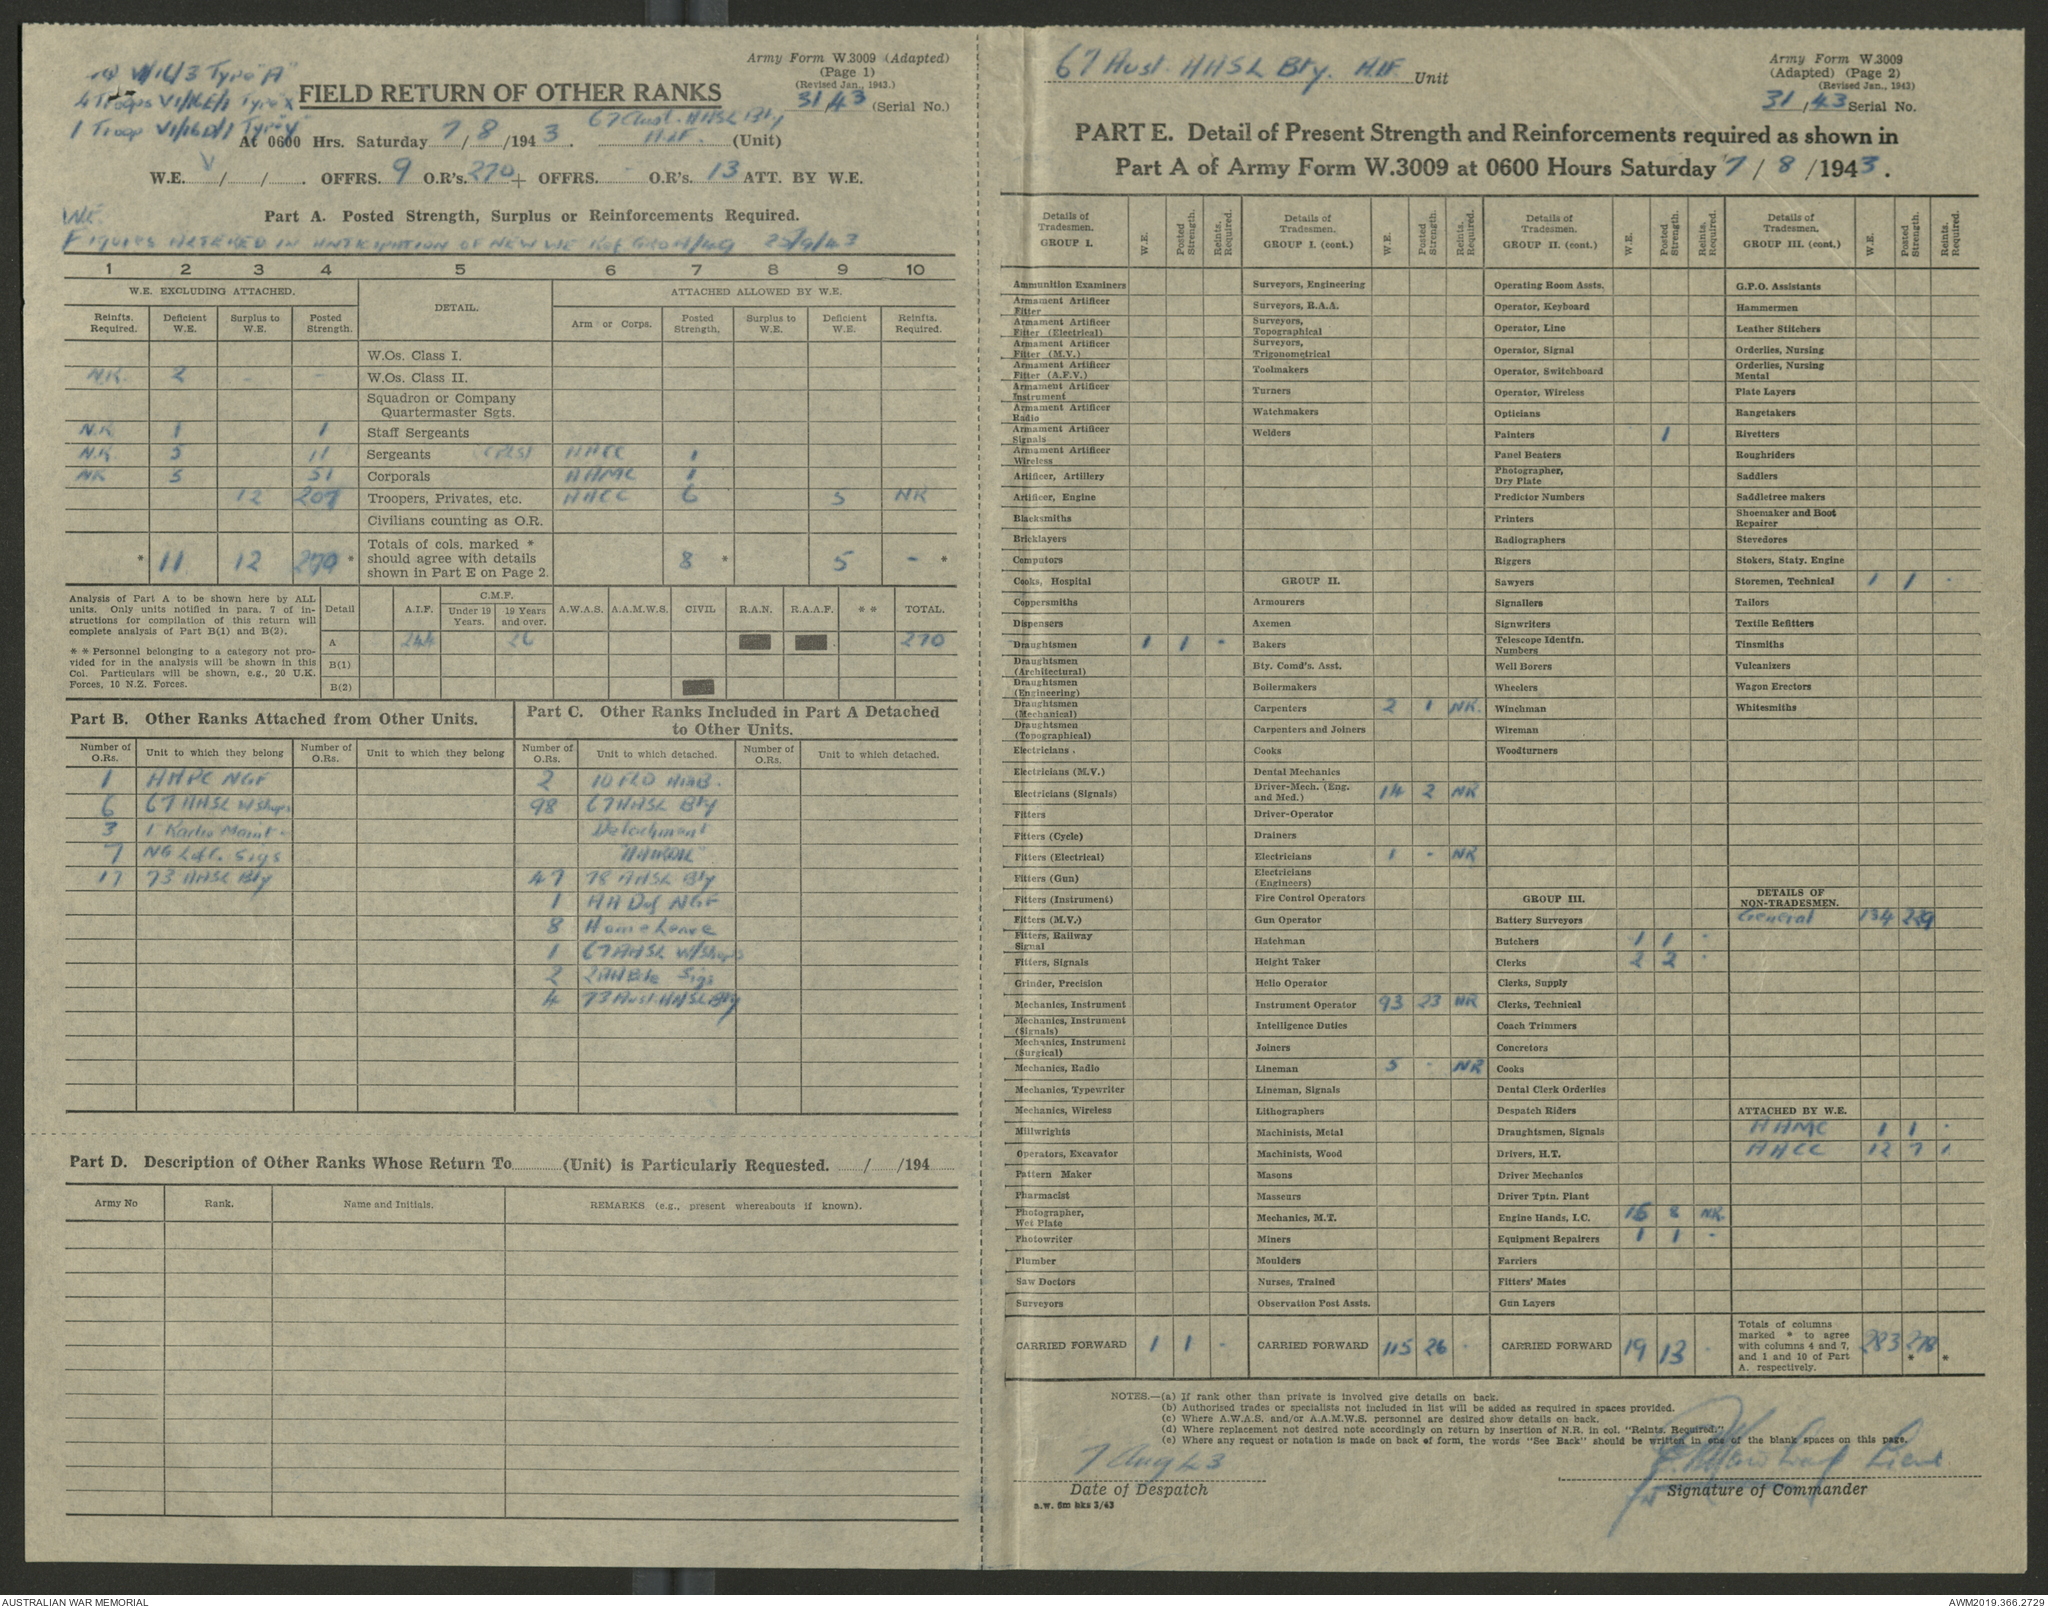 Army Form W.3009 (Adapted)
(Page 1)
(Revised Jan., 1943.)
31/43 (Serial No.)
VI/16E/1 Type "X"
1 Troop VI/16D/1 Type "Y"
FIELD RETURN OF OTHER RANKS
At 0600 Hrs. Saturday 7/8/1943. 67 Aust. AASL Bty AIF. (Unit)
W.E. / / OFFRS. 9 O.R's. 270 + OFFRS. - O.R's. 13 ATT. BY W.E.
Part A. Posted Strength, Surplus or Reinforcements Required.
W.E. FIGURES ALTERED IN ANTICIPATION OF NEW W.E. Ref
1 2 3 4 5 6 7 8 9 10
W.E. EXCLUDING ATTACHED. DETAIL. ATTACHED ALLOWED BY W.E.
Reinfts. Required. Deficient W.E. Surplus to W.E. Posted Strength. Arm or Corps. Posted Strength. Surplus to W.E. Deficient W.E. Reinfts. Required.
W.Os. Class I.
N.R. 2 - - W.Os. Class II.
Squadron or Company Quartermaster Sgts.
N.R. 1 1 Staff Sergeants
N.R. 5 11 Sergeants AACC 1
NR 5 51 Corporals AAMC 1
12 207 Troopers, Privates, etc. AACC 6 5 NR
Civilians counting as O.R.
* 11 12 270 * Totals of cols. marked * should agree with details shown in Part E on Page 2. 8 * 5 - *
Analysis of Part A to be shown here by ALL units. Only units notified in para. 7 of instructions for compilation of this return will complete analysis of Part B(1) and B(2).
* * Personnel belonging to a category not provided for in the analysis will be shown in this Col. Particulars will be shown, e.g., 20 U.K. Forces, 10 N.Z. Forces.
Detail A.I.F. C.M.F. Under 19 Years. 19 Years and over. A.W.A.S. A.A.M.W.S. CIVIL R.A.N. R.A.A.F. * * TOTAL.
A 244 26 270
B(1)
B(2)
Part B. Other Ranks Attached from Other Units.
Number of O.Rs. Unit to which they belong Number of O.Rs. Unit to which they belong
1 AAPC NGF
6 67 AASL W/Shops
3 1 Radio Maint.
7 NG L of C. Sigs
17 73 AASL Bty
Part C. Other Ranks Included in Part A Detached to Other Units.
Number of O.Rs. Unit to which detached. Number of O.Rs. Unit to which detached.
2 10 FLD AMB.
98 67 AASL Bty
Detachment
47 78 AASL Bty
1 AA Def NGF
8 Home Leave
1 67 AASL W/Shops
2 Sigs
4 73 Aust. AASL Bty
Part D. Description of Other Ranks Whose Return To (Unit) is Particularly Requested. / /194
Army No Rank. Name and Initials. REMARKS (e.g., present whereabouts if known).
67 Aust. AASL Bty. AIF. Unit
Army Form W.3009
(Adapted) (Page 2)
(Revised Jan., 1943)
31/43 Serial No.
PART E. Detail of Present Strength and Reinforcements required as shown in
Part A of Army Form W.3009 at 0600 Hours Saturday 7/8/1943.
Details of Tradesmen. GROUP I. W.E. Posted Strength. Reints. Required.
Ammunition Examiners
Armament Artificer Fitter
Armament Artificer Fitter (Electrical)
Armament Artificer Fitter (M.V.)
Armament Artificer Fitter (A.F.V.)
Armament Artificer Instrument
Armament Artificer Radio
Armament Artificer Signals
Armament Artificer Wireless
Artificer, Artillery
Artificer, Engine
Blacksmiths
Bricklayers
Computors
Cooks, Hospital
Coppersmiths
Dispensers
Draughtsmen 1 1 -
Draughtsmen (Architectural)
Draughtsmen (Engineering)
Draughtsmen (Mechanical)
Draughtsmen (Topographical)
Electricians .
Electricians (M.V.)
Electricians (Signals)
Fitters
Fitters (Cycle)
Fitters (Electrical)
Fitters (Gun)
Fitters (Instrument)
Fitters (M.V.)
Fitters, Railway Signal
Fitters, Signals
Grinder, Precision
Mechanics, Instrument
Mechanics, Instrument (Signals)
Mechanics, Instrument (Surgical)
Mechanics, Radio
Mechanics, Typewriter
Mechanics, Wireless
Millwrights
Operators, Excavator
Pattern Maker
Pharmacist
Photographer, Wet Plate
Photowriter
Plumber
Saw Doctors
Surveyors
CARRIED FORWARD 1 1 -
Details of Tradesmen. GROUP I. (cont.) W.E. Posted Strength. Reints. Required.
Surveyors, Engineering
Surveyors, R.A.A.
Surveyors, Topographical
Surveyors, Trigonometrical
Toolmakers
Turners
Watchmakers
Welders
GROUP II.
Armourers
Axemen
Bakers
Bty. Comd's. Asst.
Boilermakers
Carpenters 2 1 NR.
Carpenters and Joiners
Cooks
Dental Mechanics
Driver-Mech. (Eng. and Med.) 14 2 NR
Driver-Operator
Drainers
Electricians 1 - NR
Electricians (Engineers)
Fire Control Operators
Gun Operator
Hatchman
Height Taker
Helio Operator
Instrument Operator 93 23 NR
Intelligence Duties
Joiners
Lineman 5 - NR
Lineman, Signals
Lithographers
Machinists, Metal
Machinists, Wood
Masons
Masseurs
Mechanics, M.T.
Miners
Moulders
Nurses, Trained
Observation Post Assts.
CARRIED FORWARD 115 26 -
Details of Tradesmen. GROUP II. (cont.) W.E. Posted Strength. Reints. Required.
Operating Room Assts.
Operator, Keyboard
Operator, Line
Operator, Signal
Operator, Switchboard
Operator, Wireless
Opticians
Painters 1
Panel Beaters
Photographer, Dry Plate
Predictor Numbers
Printers
Radiographers
Riggers
Sawyers
Signallers
Signwriters
Telescope Identfn. Numbers
Well Borers
Wheelers
Winchman
Wireman
Woodturners
GROUP III.
Battery Surveyors
Butchers 1 1 -
Clerks 2 2 -
Clerks, Supply
Clerks, Technical
Coach Trimmers
Concretors
Cooks
Dental Clerk Orderlies
Despatch Riders
Draughtsmen, Signals
Drivers, H.T.
Driver Mechanics
Driver Tptn. Plant
Engine Hands, I.C. 15 8 NR.
Equipment Repairers 1 1 -
Farriers
Fitters' Mates
Gun Layers
CARRIED FORWARD 19 13 -
Details of Tradesmen. GROUP III. (cont.) W.E. Posted Strength. Reints. Required.
G.P.O. Assistants
Hammermen
Leather Stitchers
Orderlies, Nursing
Orderlies, Nursing Mental
Plate Layers
Rangetakers
Rivetters
Roughriders
Saddlers
Saddletree makers
Shoemaker and Boot Repairer
Stevedores
Stokers, Staty. Engine
Storemen, Technical 1 1 -
Tailors
Textile Refitters
Tinsmiths
Vulcanizers
Wagon Erectors
Whitesmiths
DETAILS OF NON-TRADESMEN.
General 134 229
ATTACHED BY W.E.
AAMC 1 1 -
AACC 12 7 1
Totals of columns marked * to agree with columns 4 and 7, and 1 and 10 of Part A. respectively. 283 278 * *
NOTES.—(a) If rank other than private is involved give details on back.
(b) Authorised trades or specialists not included in list will be added as required in spaces provided.
(c) Where A.W.A.S. and/or A.A.M.W.S. personnel are desired show details on back.
(d) Where replacement not desired note accordingly on return by insertion of N.R. in col. "Reints. Required."
(e) Where any request or notation is made on back of form, the words "See Back" should be written in one of the blank spaces on this page.
7 Aug 43
Date of Despatch
a.w. 6m bks 3/43
Lieut
for Signature of Commander
AUSTRALIAN WAR MEMORIAL
AWM2019.366.2729